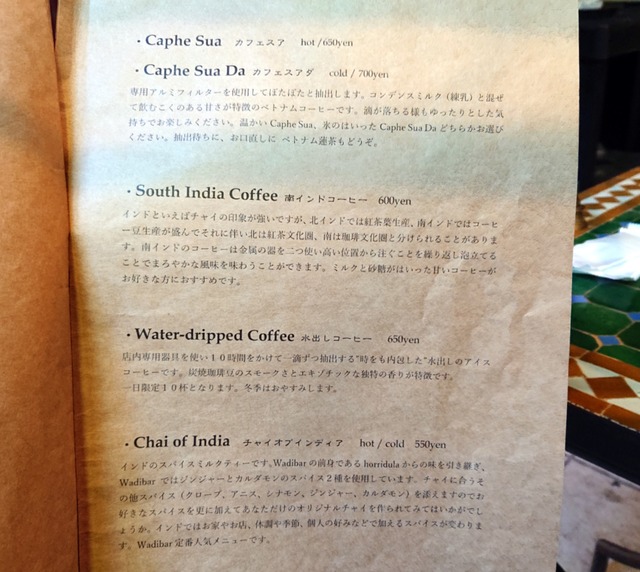 ・Caphe Sua カフェスア hot /650yen
・Caphe Sua Da カフェスアダ cold / 700yen
専用アルミフィルターを使用してぽたぽたと抽出します。コンデンスミルク（練乳）と混ぜ
て飲むこくのある甘さが特徴のベトナムコーヒーです。滴が落ちる様もゆったりとした気
持ちでお楽しみください。温かい Caphe Sua、氷のはいった Caphe Sua Da どちらかお選び
ください。抽出待ちに、お口直しに ベトナム蓮茶もどうぞ。
・South India Coffee 南インドコーヒー 600yen
インドといえばチャイの印象が強いですが、北インドでは紅茶葉生産、南インドではコーヒ
ー豆生産が盛んでそれに伴い北は紅茶文化圏、南は珈琲文化圏と分けられることがありま
す。南インドのコーヒーは金属の器を二つ使い高い位置から注ぐことを繰り返し泡立てる
ことでまろやかな風味を味わうことができます。ミルクと砂糖がはいった甘いコーヒーが
お好きな方におすすめです。
・Water-dripped Coffee 水出しコーヒー 650yen
店内専用器具を使い１０時間をかけて一滴ずつ抽出する"時をも内包した"水出しのアイス
コーヒーです。炭焼珈琲豆のスモークさとエキゾチックな独特の香りが特徴です。
一日限定１０杯となります。冬季はおやすみします。
・Chai of India チャイオブインディア hot / cold 550yen
インドのスパイスミルクティーです。Wadibar の前身である horridula からの味を引き継ぎ、
Wadibar ではジンジャーとカルダモンのスパイス２種を使用しています。チャイに合うそ
の他スパイス（クローブ、アニス、シナモン、ジンジャー、カルダモン）を添えますのでお
好きなスパイスを更に加えてあなただけのオリジナルチャイを作られてみてはいかがでし
ょうか。インドではお家やお店、体調や季節、個人の好みなどで加えるスパイスが変わりま
す。Wadibar 定番人気メニューです。